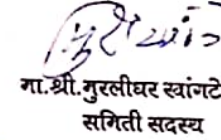 मा.श्री.मुरलीधर स्वांगटे
समिती सदस्य